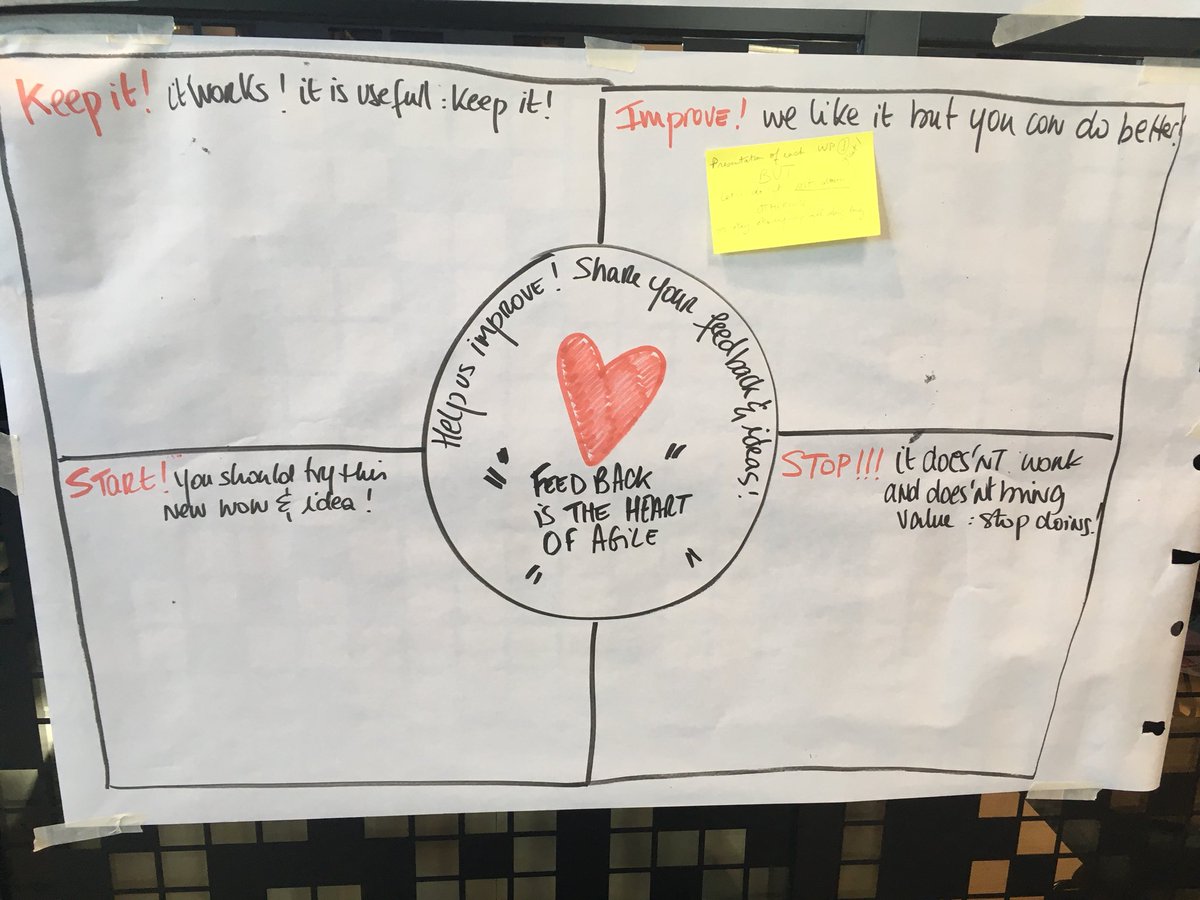 Keep it! it works! it is useful: Keep it!
Improve! we like it but you can do better!
Presentation of each WP
BUT
Help us improve! Share your feedback & ideas!
"FEEDBACK
is THE HEART
OF AGiLE"
START! you should try this
new wow & idea!
STOP!!! it does'NT work
and does'nt bring
value: stop doing!